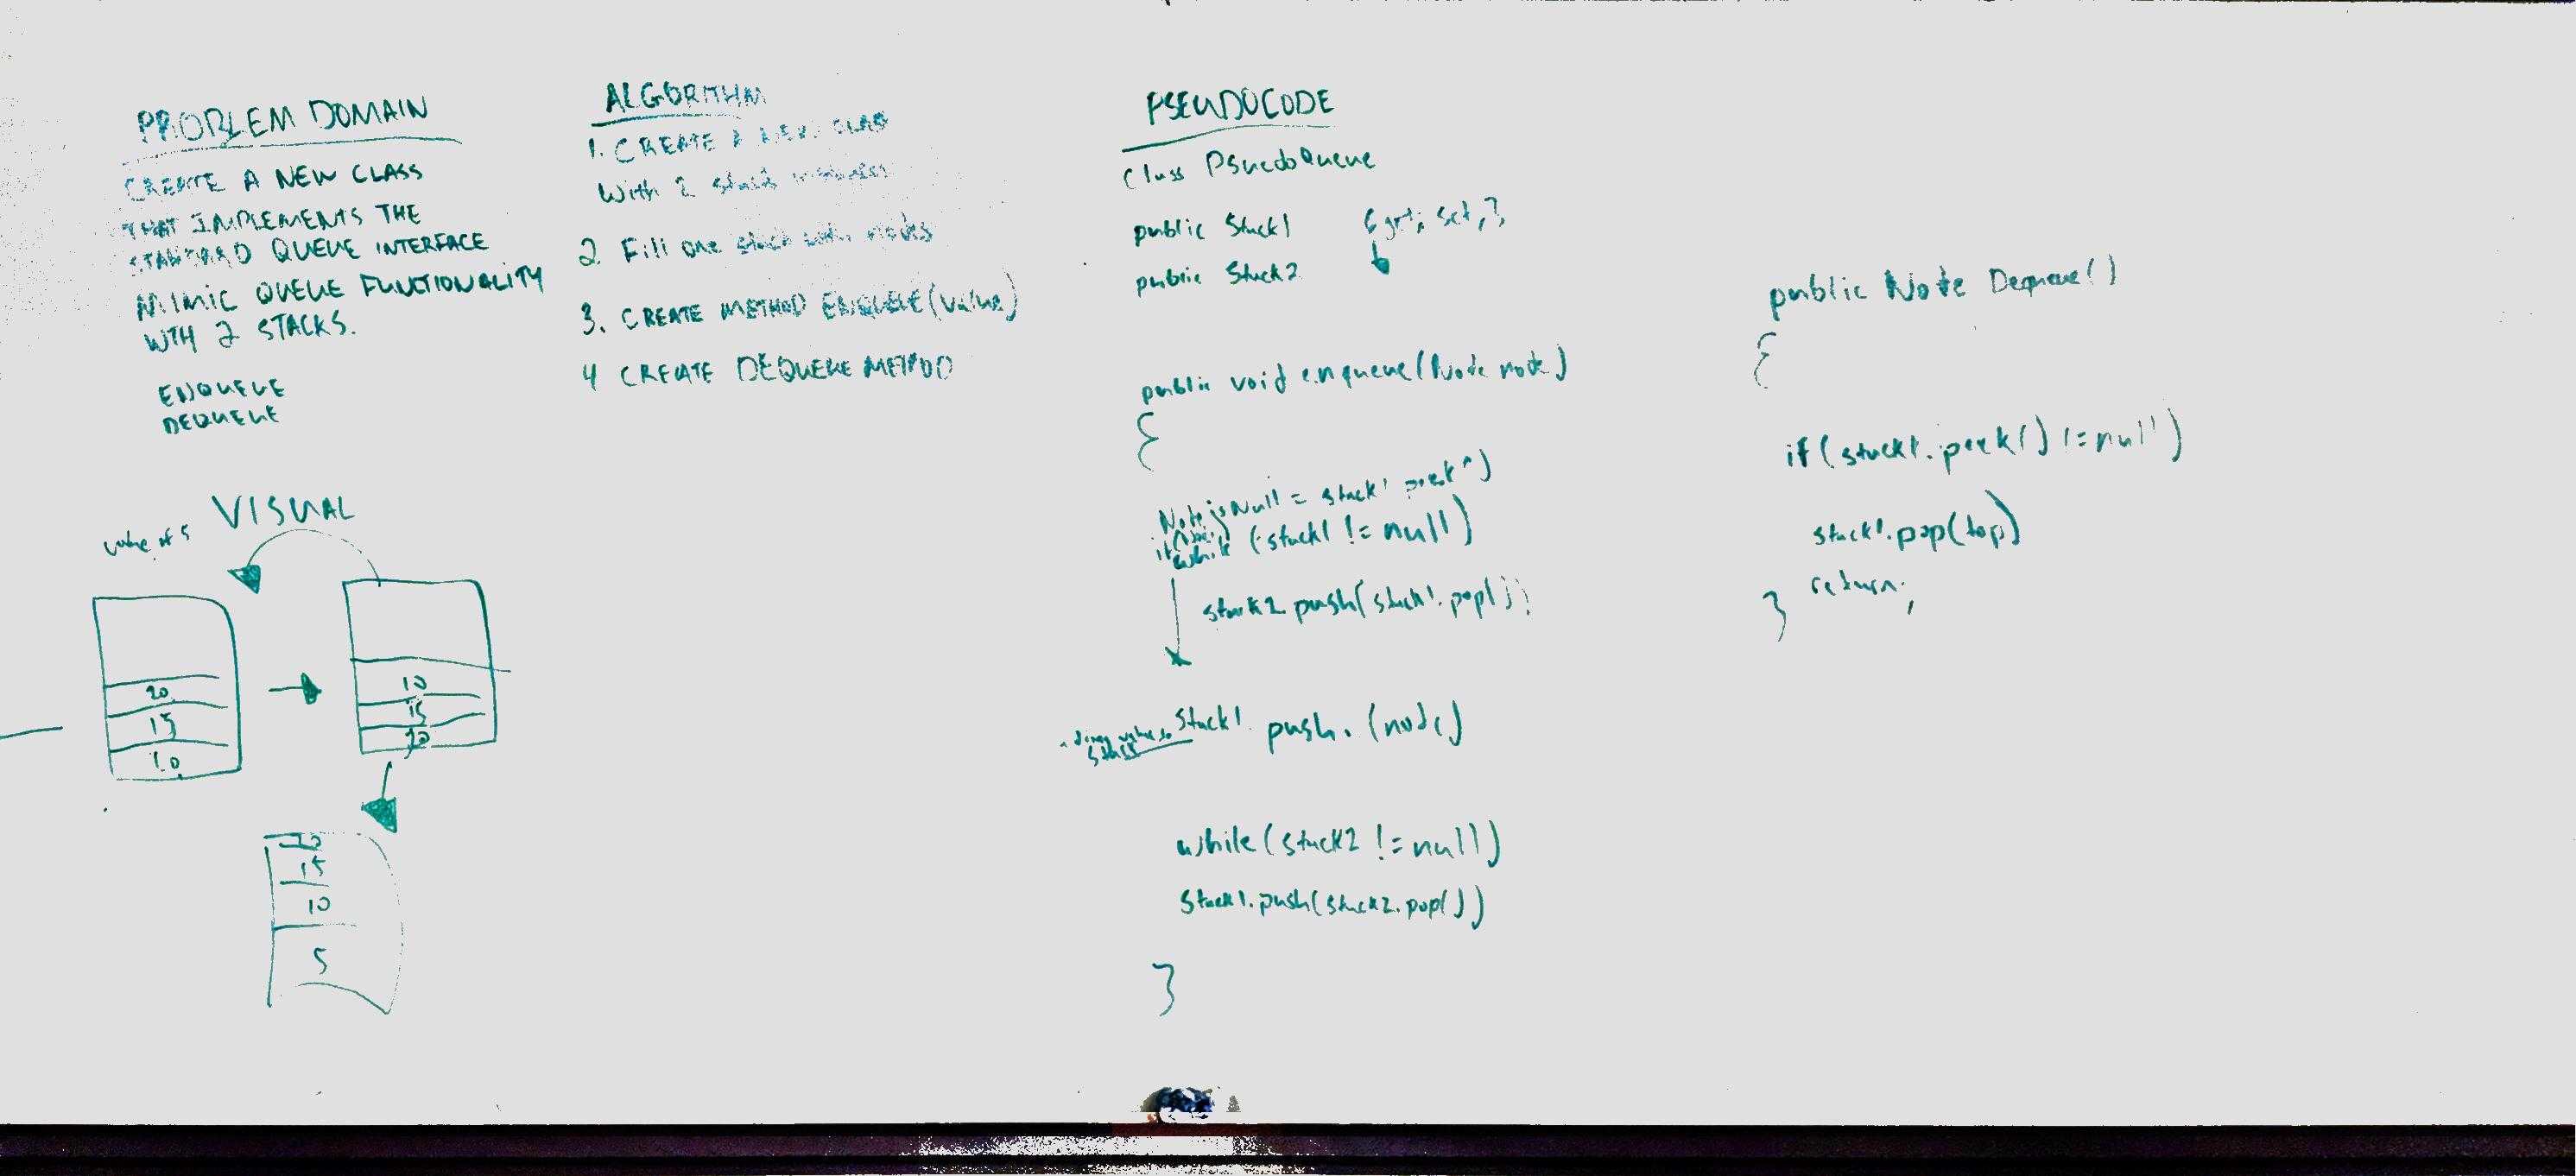 PROBLEM DOMAIN
CREATE A NEW CLASS
THAT IMPLEMENTS THE
STANDARD QUEUE INTERFACE
MIMIC QUEUE FUNCTIONALITY
WITH 2 STACKS.
ENQUEUE
DEQUEUE
ALGORITHM
1. CREATE A NEW CLASS
With 2 stack
2 Fill one stack with nodes
3. CREATE METHOD ENQUEUE(value)
4 CREATE DEQUEUE METHOD
VISUAL
value of 5
20
15
10
10
15
20
20
15
10
5
PSEUDOCODE
Class PsuedoQueue
public Stack1 {get; set;}
public Stack2
public void enqueue(Node node)
{
Node isNull = stack1 peek()
while (stack1 != null)
stack2.push(stack1.pop());
Stack1. push. (node)
while(stack2 != null)
Stack1.push(stack2.pop())
}
public Node Dequeue()
{
if(stack1.peek() != null)
stack1.pop(top)
return;
}